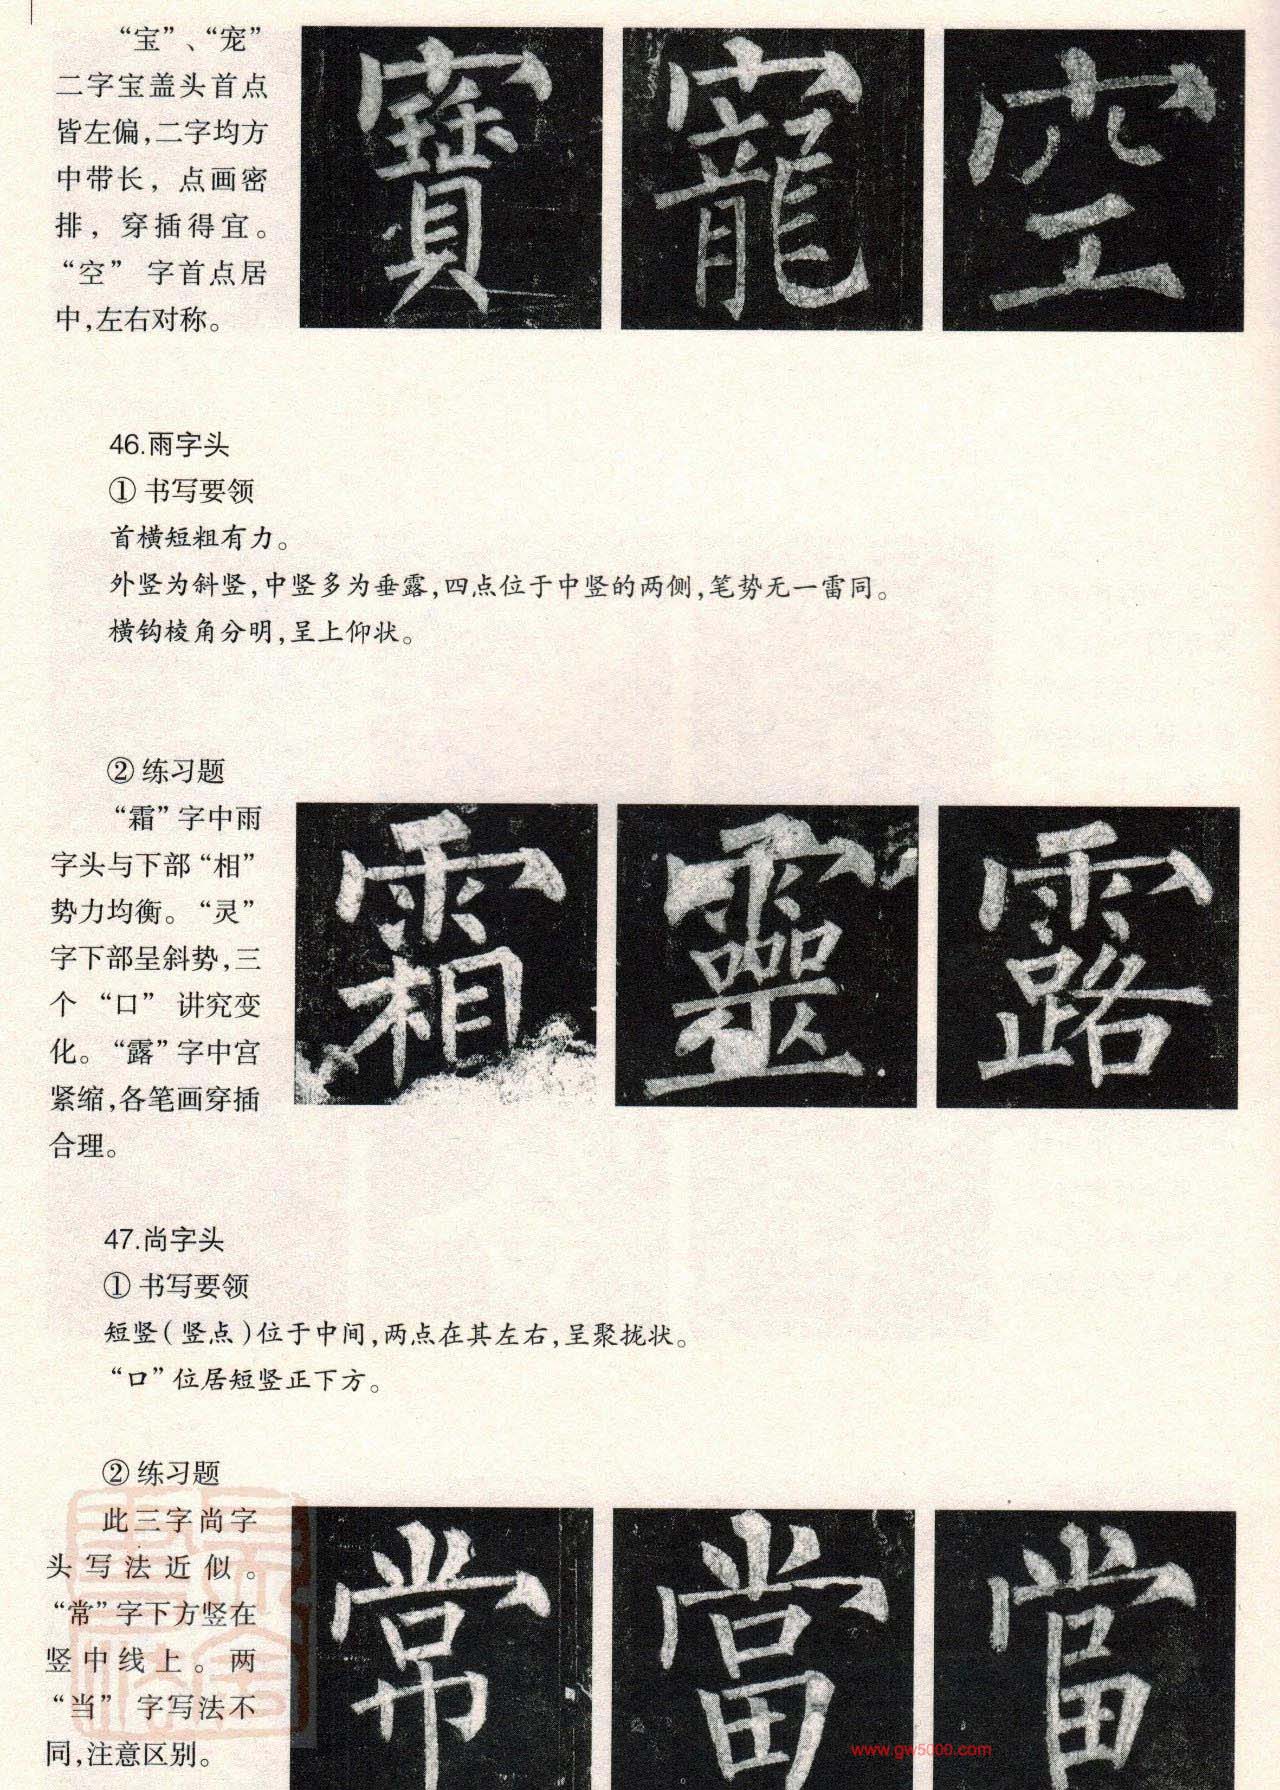 “宝”、“宠”
二字宝盖头首点
皆左偏,二字均方
中带长，点画密
排，穿插得宜。
“空”字首点居
中,左右对称。
寶 寵 空
46.雨字头
① 书写要领
首横短粗有力。
外竖为斜竖,中竖多为垂露,四点位于中竖的两侧,笔势无一雷同。
横钩棱角分明,呈上仰状。
② 练习题
“霜”字中雨
字头与下部“相”
势力均衡。“灵”
字下部呈斜势,三
个“口”讲究变
化。“露”字中宫
紧缩,各笔画穿插
合理。
霜 靈 露
47.尚字头
① 书写要领
短竖(竖点)位于中间,两点在其左右,呈聚拢状。
“口”位居短竖正下方。
② 练习题
此三字尚字
头写法近似。
“常”字下方竖在
竖中线上。两
“当”字写法不
同,注意区别。
常 當 當
www.gw5000.com